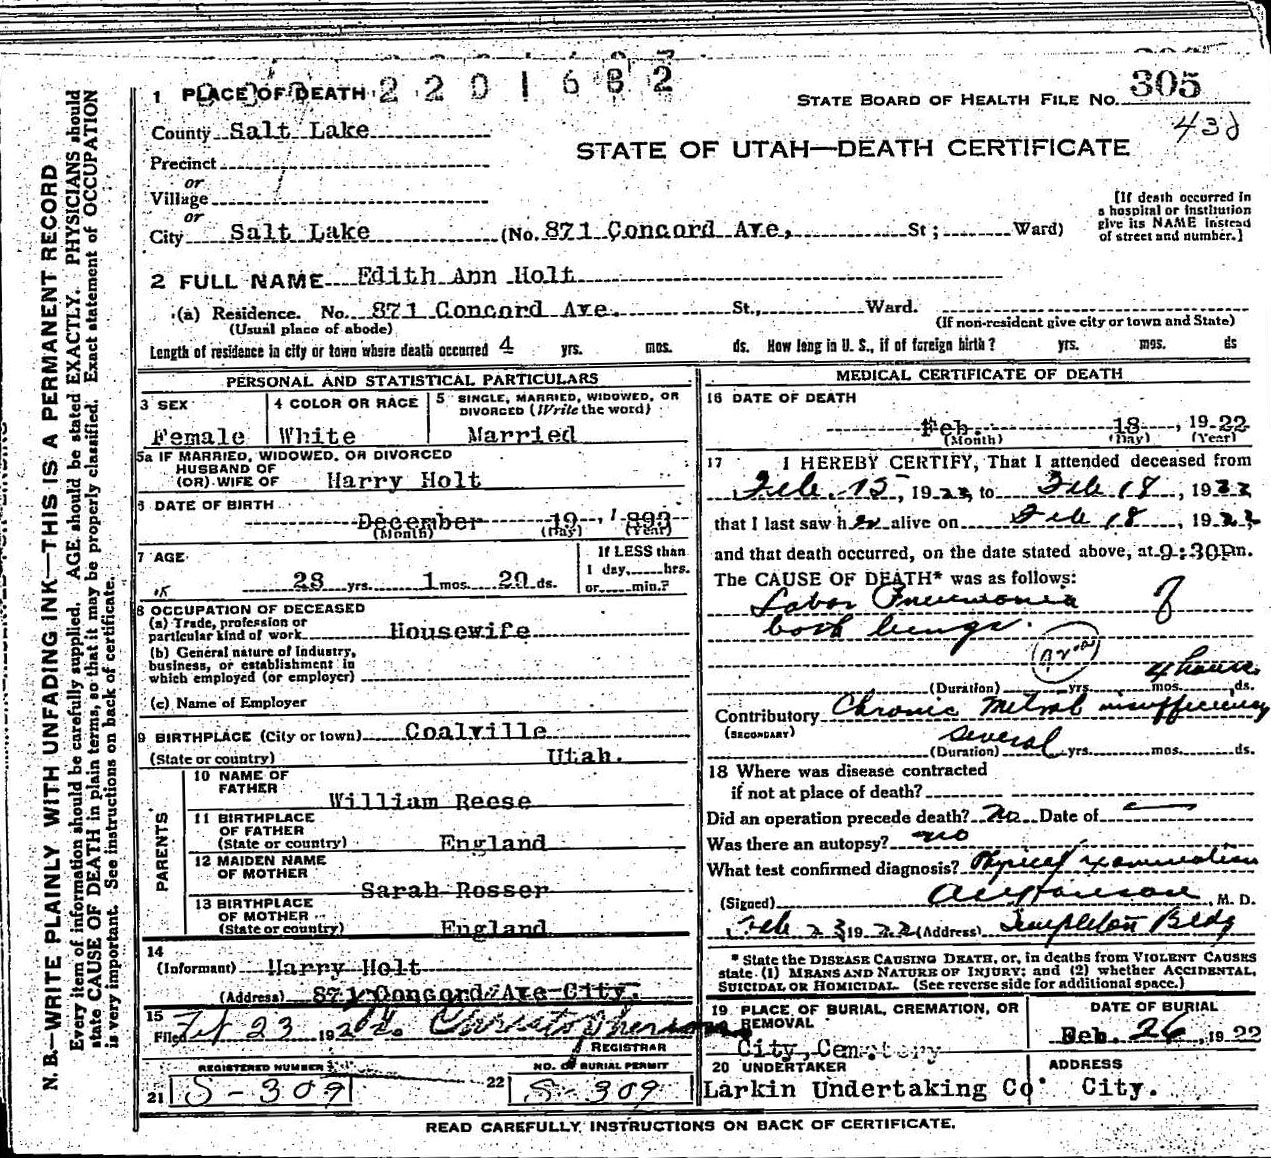 1 PLACE OF DEATH 2201682
STATE BOARD OF HEALTH FILE No. 305
County Salt Lake
43d
STATE OF UTAH—DEATH CERTIFICATE
Precinct
or
Village
or
City Salt Lake (No. 871 Concord Ave, St; Ward)
[If death occurred in
a hospital or institution
give its NAME instead
of street and number.]
2 FULL NAME Edith Ann Holt
(a) Residence. No. 871 Concord Ave. St., Ward.
(Usual place of abode) (If non-resident give city or town and State)
Length of residence in city or town where death occurred 4 yrs. mos. ds. How long in U. S., if of foreign birth? yrs. mos. ds
PERSONAL AND STATISTICAL PARTICULARS
3 SEX 4 COLOR OR RACE 5 SINGLE, MARRIED, WIDOWED, OR
DIVORCED (Write the word)
Female White Married
5a IF MARRIED, WIDOWED, OR DIVORCED
HUSBAND OF
(OR) WIFE OF Harry Holt
6 DATE OF BIRTH
December 19 1893
(Month) (Day) (Year)
7 AGE If LESS than
1 day, hrs.
28 yrs. 1 mos. 29 ds. or min.?
8 OCCUPATION OF DECEASED
(a) Trade, profession or
particular kind of work Housewife
(b) General nature of industry,
business, or establishment in
which employed (or employer)
(c) Name of Employer
9 BIRTHPLACE (City or town) Coalville
(State or country) Utah.
PARENTS
10 NAME OF
FATHER
William Reese
11 BIRTHPLACE
OF FATHER
(State or country) England
12 MAIDEN NAME
OF MOTHER
Sarah Rosser
13 BIRTHPLACE
OF MOTHER
(State or country) England
14
(Informant) Harry Holt
(Address) 871 Concord Ave City.
15
Filed Feb 23 192 Christopherson
REGISTRAR
REGISTERED NUMBER NO. OF BURIAL PERMIT
21 S-309 22 S-309
MEDICAL CERTIFICATE OF DEATH
16 DATE OF DEATH
Feb. 18, 1922
(Month) (Day) (Year)
17 I HEREBY CERTIFY, That I attended deceased from
Feb. 15, 1922 to Feb 18, 1922
that I last saw her alive on Feb 18, 1922
and that death occurred, on the date stated above, at 9:30Pm.
The CAUSE OF DEATH* was as follows:
Labor Pneumonia of
both lungs.
4 hours
(Duration) yrs. mos. ds.
Contributory Chronic Metral insufficiency
(SECONDARY) several
(Duration) yrs. mos. ds.
18 Where was disease contracted
if not at place of death?
Did an operation precede death? no Date of
Was there an autopsy? no
What test confirmed diagnosis? Physical examination
(Signed) M. D.
Feb 23 1922 (Address) Templeton Bldg
* State the DISEASE CAUSING DEATH, or, in deaths from VIOLENT CAUSES
state (1) MEANS AND NATURE OF INJURY; and (2) whether ACCIDENTAL,
SUICIDAL OR HOMICIDAL. (See reverse side for additional space.)
19 PLACE OF BURIAL, CREMATION, OR
REMOVAL
City, Cemetery
DATE OF BURIAL
Feb. 26, 1922
20 UNDERTAKER ADDRESS
Larkin Undertaking Co. City.
READ CAREFULLY, INSTRUCTIONS ON BACK OF CERTIFICATE.
N. B.—WRITE PLAINLY WITH UNFADING INK—THIS IS A PERMANENT RECORD
Every item of information should be carefully supplied. AGE should be stated EXACTLY. PHYSICIANS should
state CAUSE OF DEATH in plain terms, so that it may be properly classified. Exact statement of OCCUPATION
is very important. See instructions on back of certificate.